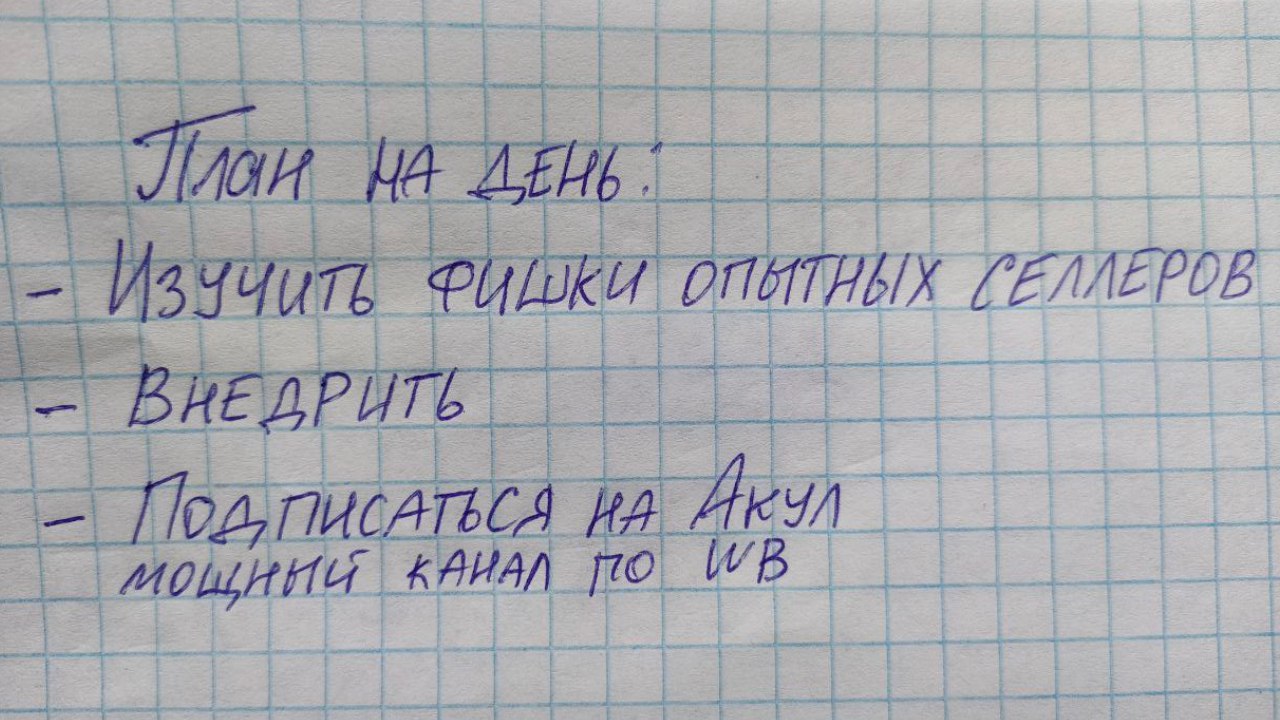 План на день:
- Изучить фишки опытных селлеров
- Внедрить
- Подписаться на Акул
мощный канал по WB